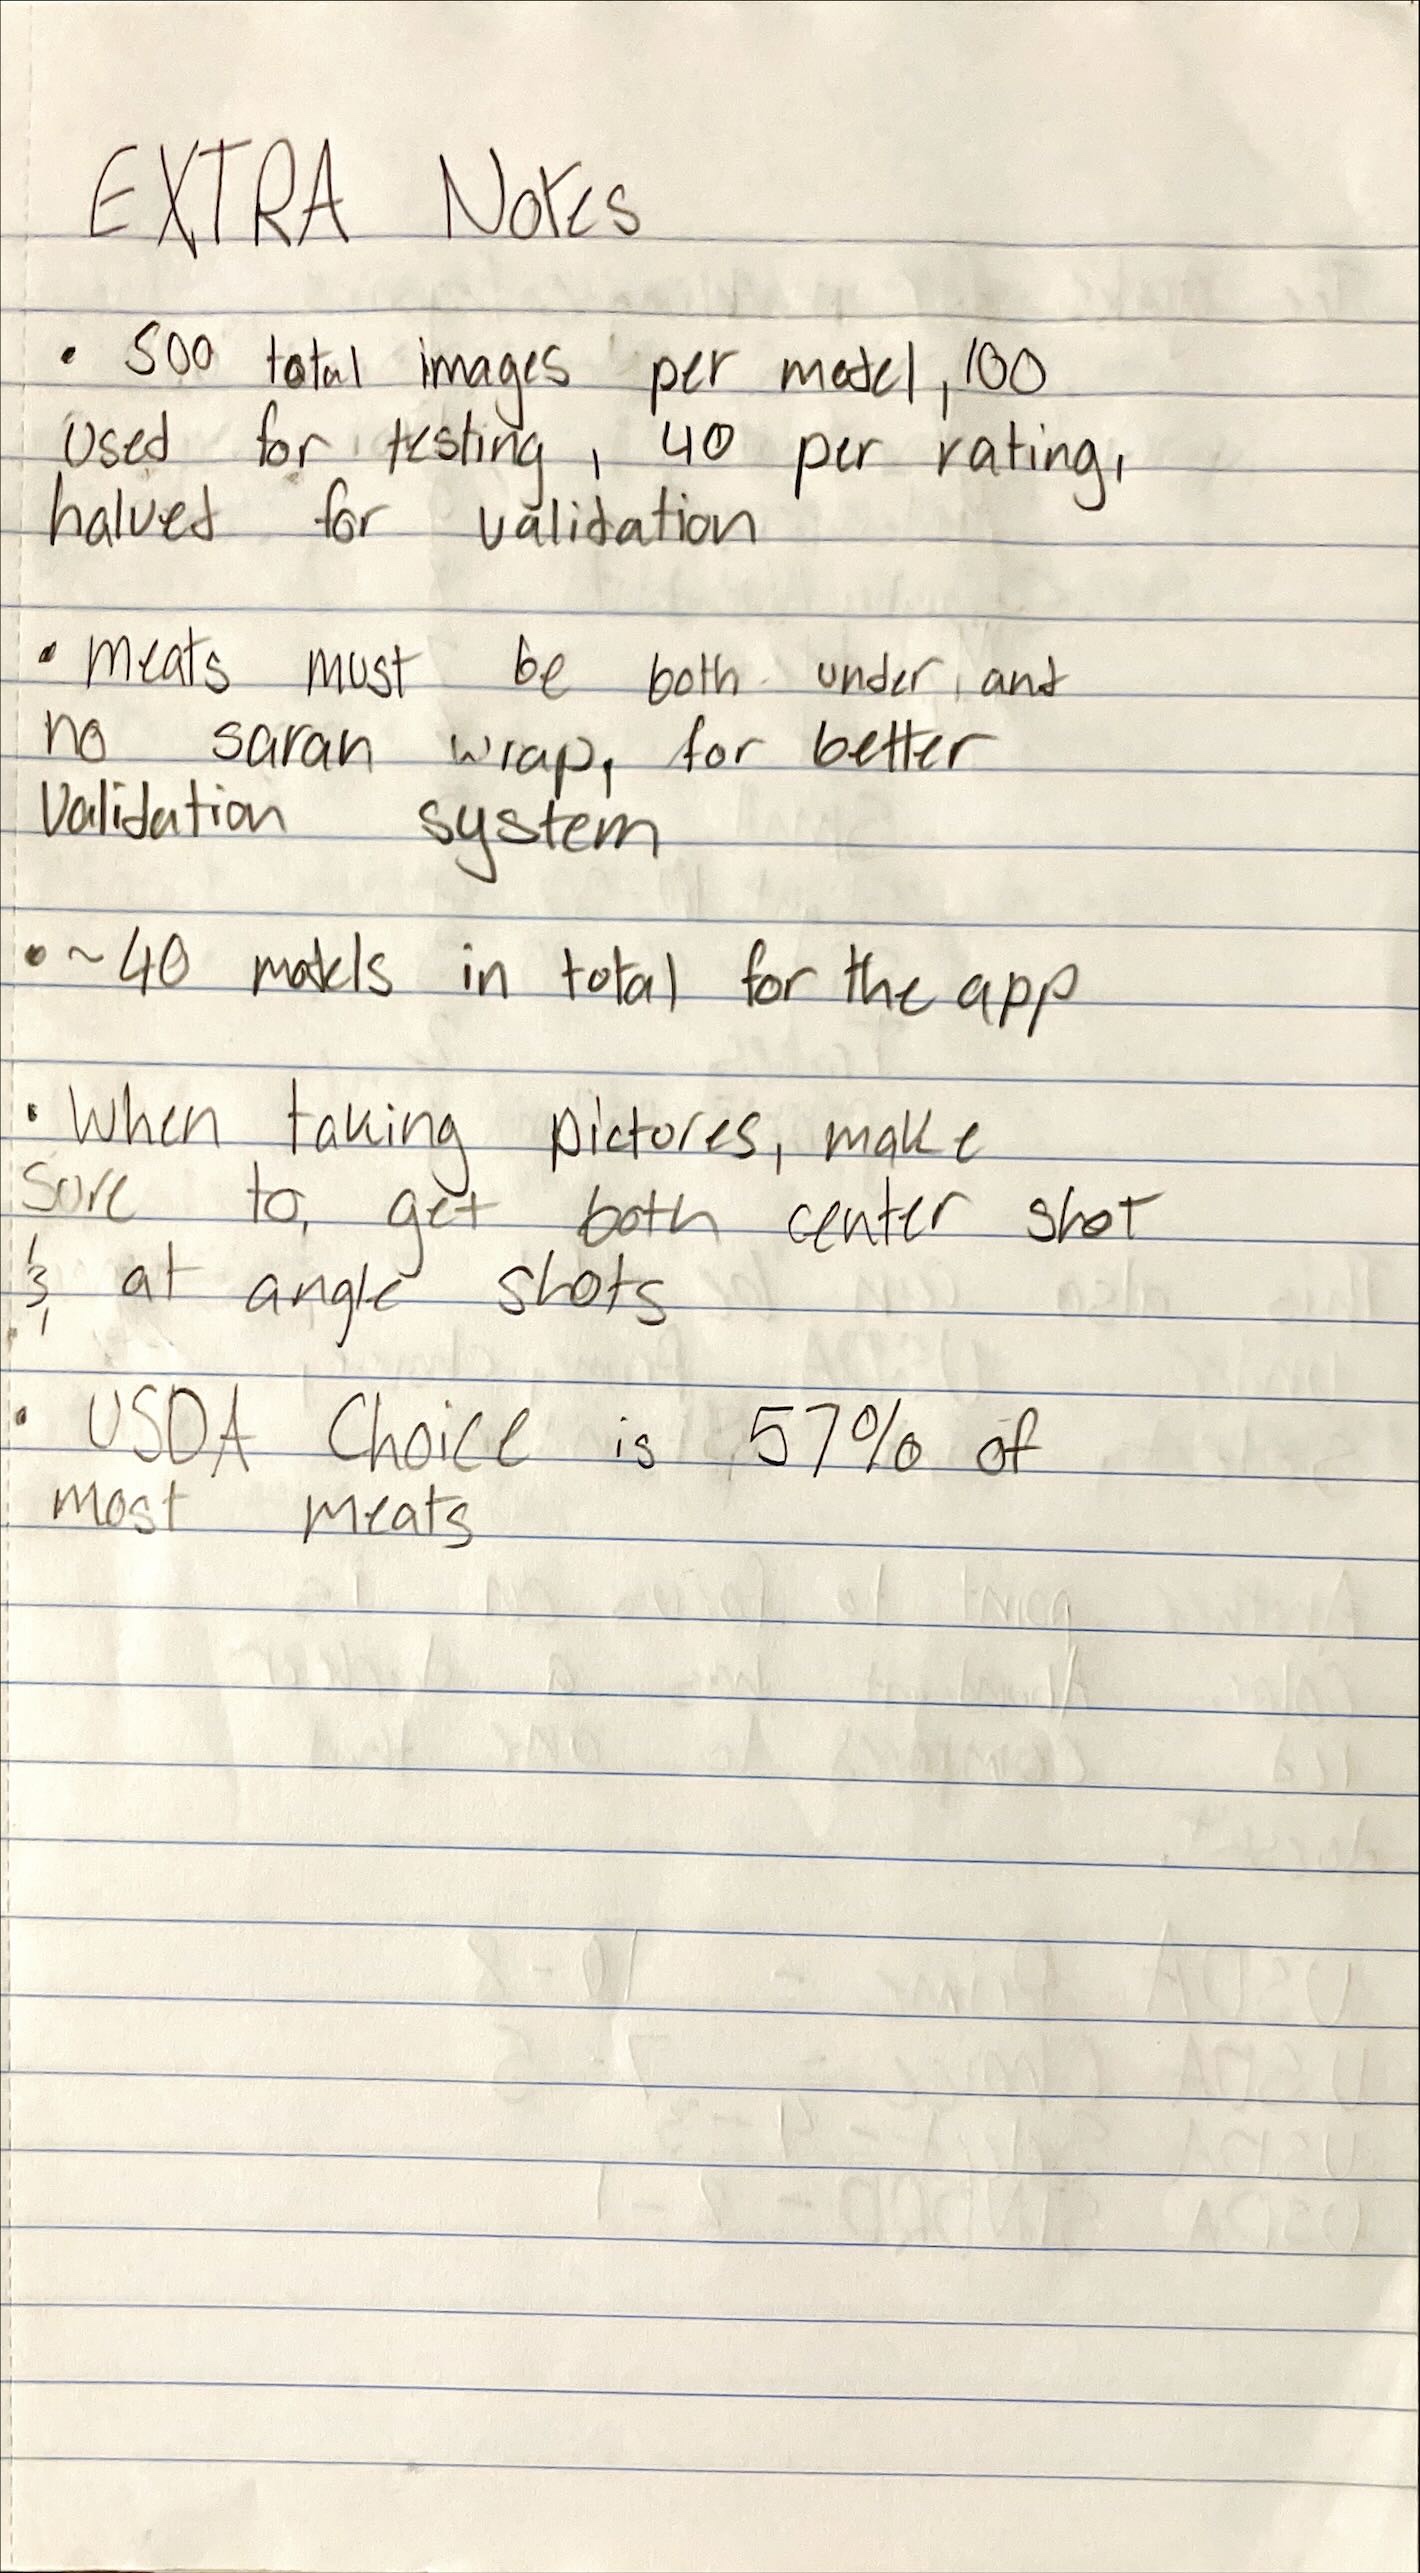 EXTRA Notes
• 500 total images per model, 100
used for testing, 40 per rating,
halved for validation
• Meats must be both under and
no saran wrap, for better
validation system
• ~40 models in total for the app
• When taking pictures, make
sure to, get both center shot
& at angle shots
• USDA Choice is 57% of
most meats